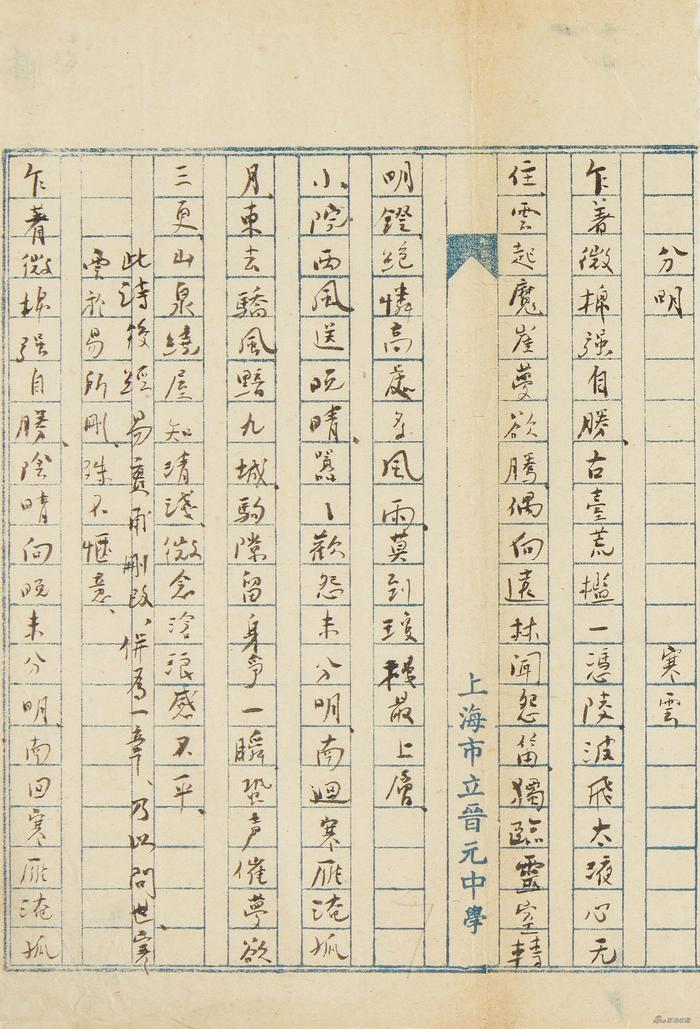 分明 寒雲
乍著微棉强自勝、古臺荒檻一憑陵、波飛太液心无
住、雲起魔崖夢欲騰、偶向遠林聞怨笛、獨臨靈室轉
上海市立晉元中學
明鐙、絶憐高處多風雨、莫到瓊樓最上層、
小院西風送晚晴、嚣々歡怨未分明、南迴寒雁淹孤
月、東去驕風黯九城、駒隙留身争一瞬、蛩声催夢欲
三更、山泉繞屋知清淺、微念滄浪感不平、
此詩後經易實甫刪改、併爲一章、乃以問世、寒
雲於易所刪、殊不愜意、
乍著微棉强自勝、陰晴向晚未分明、南回寒雁淹孤